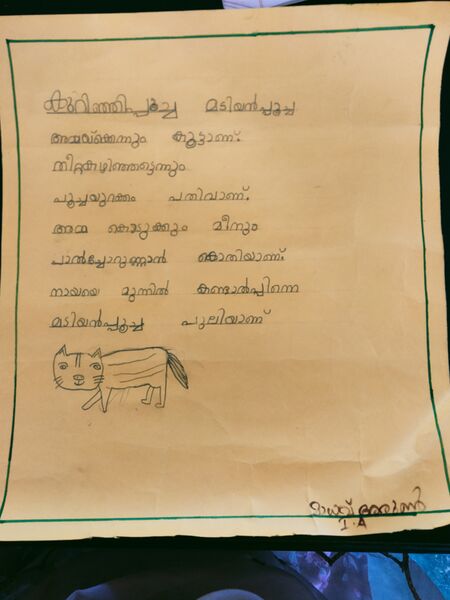 കുറിഞ്ഞിപ്പൂച്ച മടിയൻപ്പൂച്ച
അമ്മയ്ക്കെന്നും കൂട്ടാണ്.
തീറ്റകഴിഞ്ഞട്ടെന്നും
പൂച്ചയുറക്കം പതിവാണ്.
അമ്മ കൊടുക്കും മീനും
പാൽച്ചോറുണ്ണാൻ കൊതിയാണ്.
നായയെ മുന്നിൽ കണ്ടാൽപ്പിന്നെ
മടിയൻപ്പൂച്ച പുലിയാണ്
മാധവ് അരുൺ
I. A